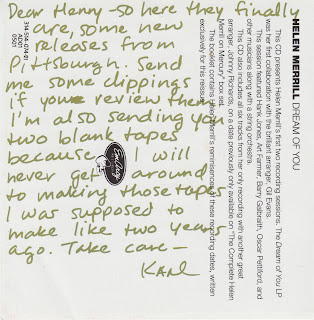 Dear Hanny—so here they finally
are, some new
releases from
Pittsburgh. Send
me some clippings
if you review them
I'm also sending you
two blank tapes
because I will
never get around
to making those tapes
I was supposed to
make like two years
ago. Take care—
Karl
HELEN MERRILL DREAM OF YOU
This CD presents Helen Merrill's first two recording sessions. The Dream of You LP
was her first collaboration with the brilliant arranger, Gil Evans.
This session featured Hank Jones, Art Farmer, Barry Galbraith, Oscar Pettiford, and
other musicians along with a string orchestra.
This CD also includes all six tracks from her only recording with another great
arranger, Johnny Richards, on a date previously only available on "The Complete Helen
Merrill on Mercury" box set.
The booklet contains Helen Merrill's reminiscences of these recording dates, written
exclusively for this release.
EmArcy